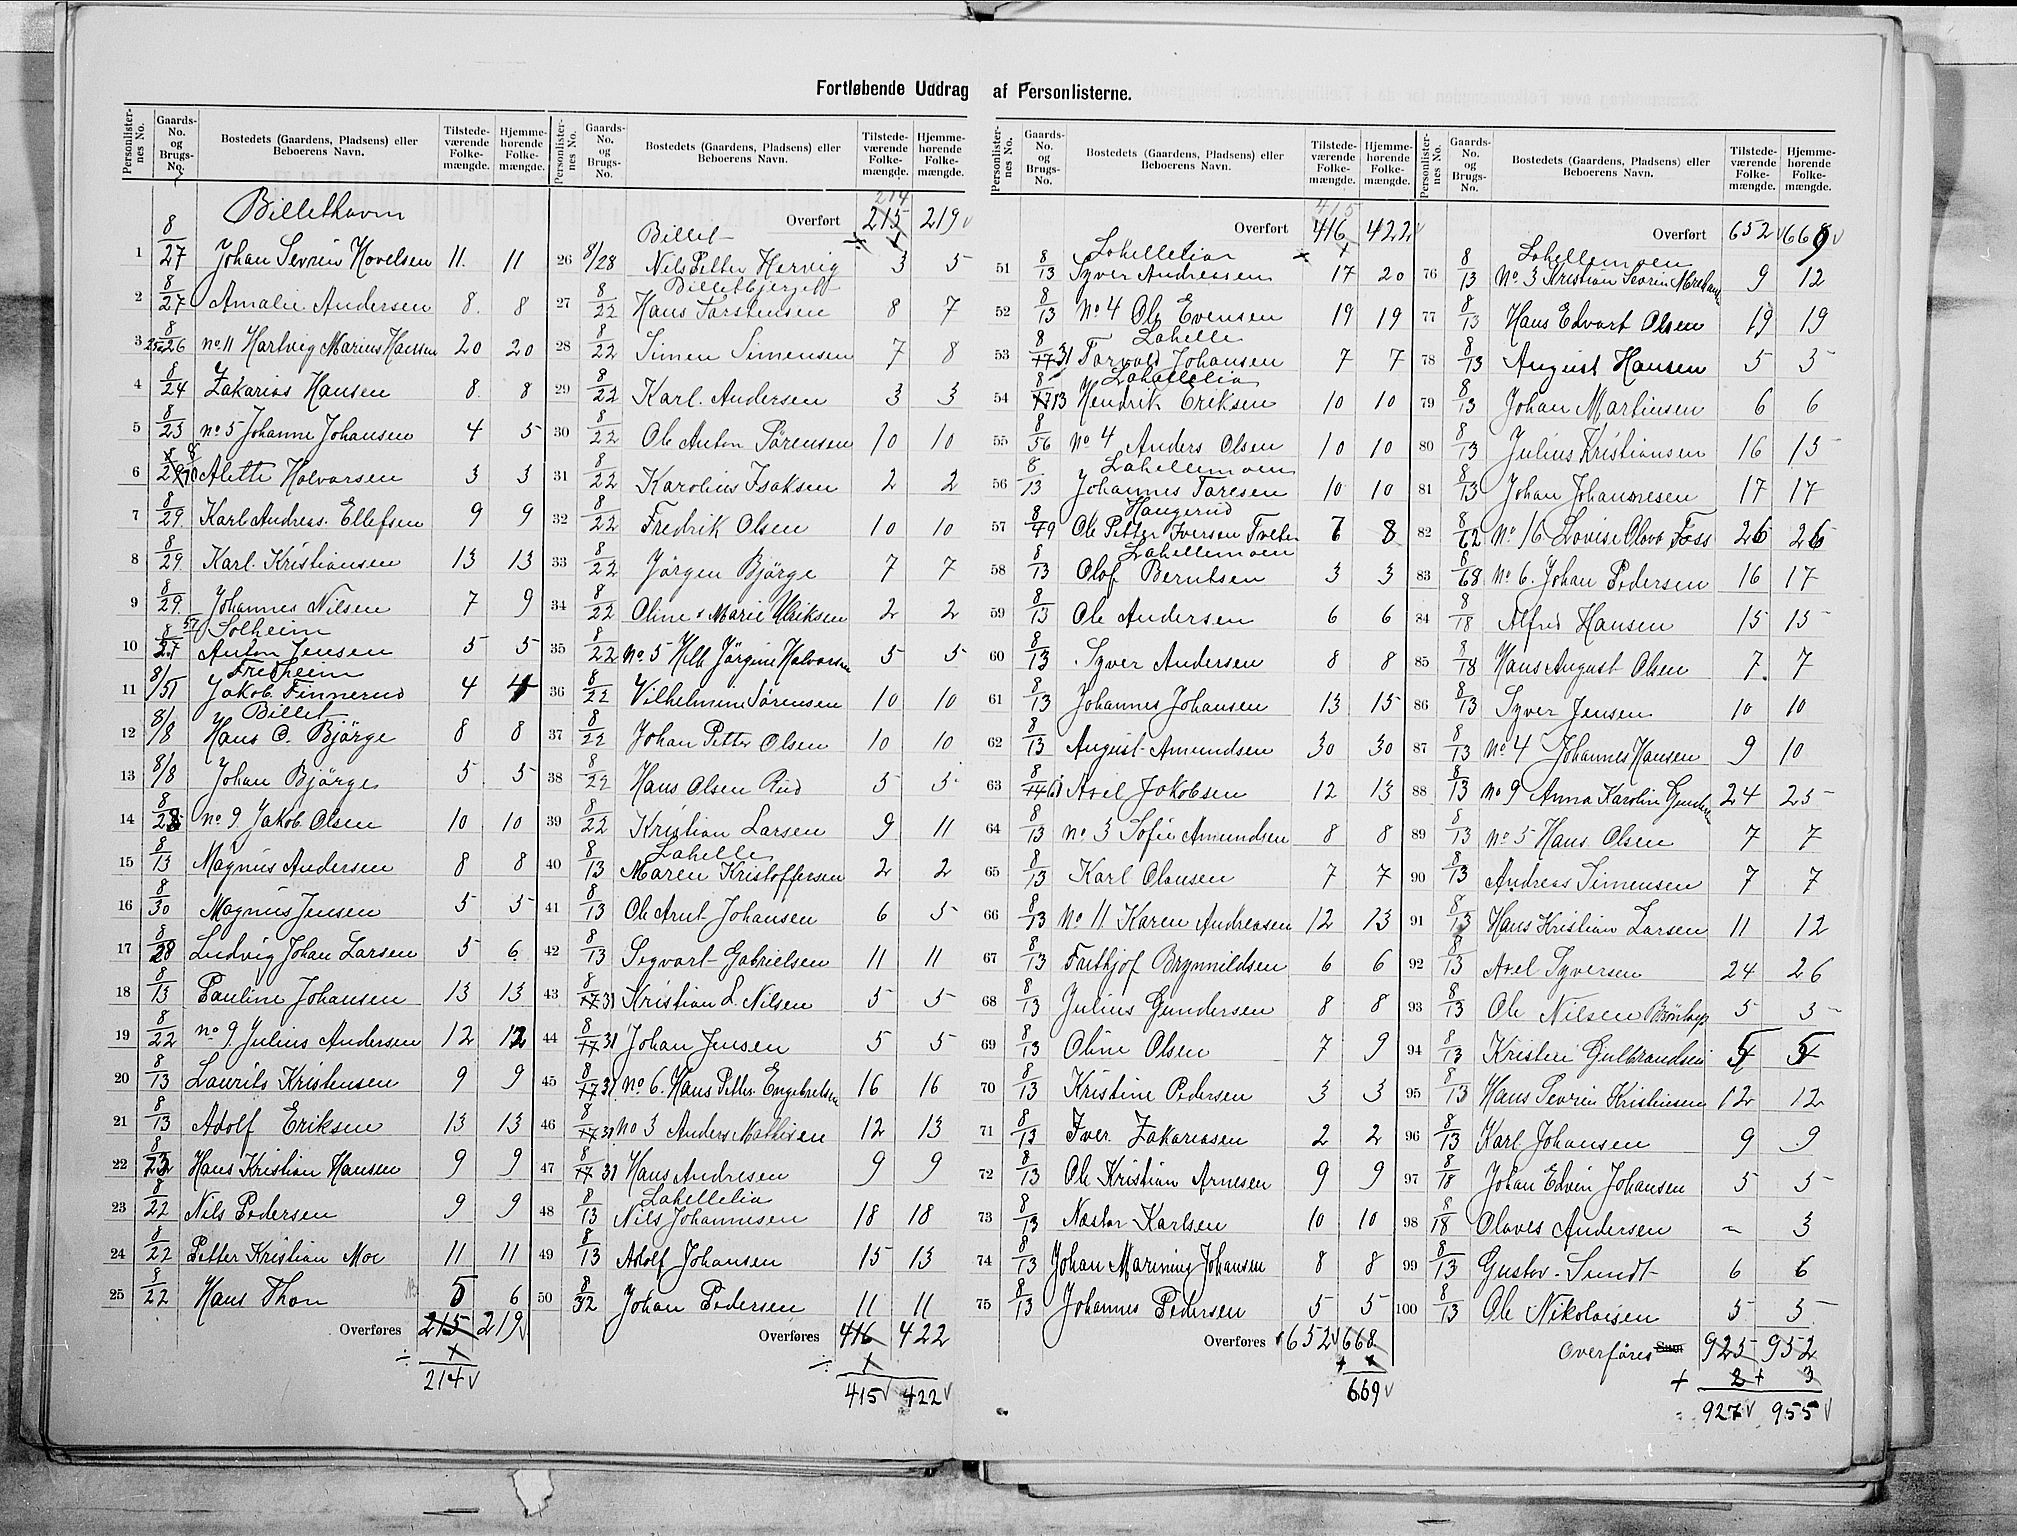 Fortløbende Uddrag af Personlisterne.
Personlister-nes No. Gaards-No. og Brugs-No. Bostedets (Gaardens, Pladsens) eller Beboerens Navn. Tilstede-værende Folke-mængde. Hjemme-hørende Folke-mængde.
Billethavn
1 8/27 Johan Sevrin Hovelsen 11 11
2 8/27 Amalie Andersen 8 8
3 25 8/26 no 11 Hartvig Marius Hansen 20 20
4 8/24 Zakarias Hansen 8 8
5 8/23 no 5 Johanne Johansen 4 5
6 Alette Halvorsen 3 3
7 8/29 Karl Andreas Ellefsen 9 9
8 8/29 Karl Kristiansen 13 13
9 8/29 Johannes Nilsen 7 9
Solheim
10 8/27 57 Anton Jensen 5 5
Fredheim
11 8/51 Jakob Finnerud 4 4
Billet
12 8/8 Hans O. Bjørge 8 8
13 8/8 Johan Bjørge 5 5
14 8/28 no 9 Jakob Olsen 10 10
15 8/13 Magnus Andersen 8 8
16 8/30 Magnus Jensen 5 5
17 8/28 Ludvig Johan Larsen 5 6
18 8/13 Pauline Johansen 13 13
19 8/22 no 9 Julius Andersen 12 12
20 8/13 Laurits Kristensen 9 9
21 8/13 Adolf Eriksen 13 13
22 8/22 Hans Kristian Hansen 9 9
23 8/22 Nils Pedersen 9 9
24 8/22 Petter Kristian Moe 11 11
25 8/22 Hans Thon 5 6
Overføres 215 219
214
Personlister-nes No. Gaards-No. og Brugs-No. Bostedets (Gaardens, Pladsens) eller Beboerens Navn. Tilstede-værende Folke-mængde. Hjemme-hørende Folke-mængde.
214
Overført 215 219
Billet
26 8/28 Nils Petter Hervig 3 5
Billetbjerget
27 8/22 Hans Torstensen 8 7
28 8/22 Simen Simensen 7 8
29 8/22 Karl Andersen 3 3
30 8/22 Ole Anton Sørensen 10 10
31 8/22 Karolius Isaksen 2 2
32 8/22 Fredrik Olsen 10 10
33 8/22 Jørgen Bjørge 7 7
34 8/22 Oline Marie Ulriksen 2 2
35 8/22 no 5 Jørgine Halvorsen 5 5
36 8/22 Vilhelmine Sørensen 10 10
37 8/22 Johan Petter Olsen 10 10
38 8/22 Hans Olsen Rud 5 5
39 8/22 Kristian Larsen 9 11
Lahelle
40 8/13 Maren Kristoffersen 2 2
41 8/13 Ole Arnt Johansen 6 5
42 8/13 Segvart Gabrielsen 11 11
43 8/17 31 Kristian L. Nilsen 5 5
44 8/17 31 Johan Jensen 5 5
45 8/17 31 no 6 Hans Petter Engebretsen 16 16
46 8/17 31 no 3 Anders Mathisen 12 13
47 8/17 31 Hans Andresen 9 9
Lahellelia
48 8/13 Nils Johannesen 18 18
49 8/13 Adolf Johansen 15 13
50 8/32 Johan Pedersen 11 11
Overføres 416 422
415 422
Personlister-nes No. Gaards-No. og Brugs-No. Bostedets (Gaardens, Pladsens) eller Beboerens Navn. Tilstede-værende Folke-mængde. Hjemme-hørende Folke-mængde.
415
Overført 416 422
Lahellelia
51 8/13 Syver Andreasen 17 20
52 8/13 no 4 Ole Evensen 19 19
Lahelle
53 8/17 31 Torvald Johansen 7 7
Lahellelia
54 8/17 13 Hendrik Eriksen 10 10
55 8/56 no 4 Anders Olsen 10 10
Lahellemoen
56 8/13 Johannes Taresen 10 10
Haugerud
57 8/49 Ole Petter Iversen Tveter 7 8
Lahellemoen
58 8/13 Olof Berntsen 3 3
59 8/13 Ole Andersen 6 6
60 8/13 Syver Andersen 8 8
61 8/13 Johannes Johansen 13 15
62 8/13 August Amundsen 30 30
63 Axel Jakobsen 12 13
64 8/13 no 3 Sofie Amundsen 8 8
65 8/13 Karl Olausen 7 7
66 8/13 no 11 Karen Andreasen 12 13
67 8/13 Frithjof Brynnildsen 6 6
68 8/13 Julius Gundersen 8 8
69 8/13 Oline Olsen 7 9
70 8/13 Kristine Pedersen 3 3
71 8/13 Iver Zakariasen 2 2
72 8/13 Ole Kristian Arnesen 9 9
73 8/13 Nestor Karlsen 10 10
74 8/13 Johan Marining Johansen 8 8
75 8/13 Johannes Pedersen 5 5
Overføres 652 668
669
Personlister-nes No. Gaards-No. og Brugs-No. Bostedets (Gaardens, Pladsens) eller Beboerens Navn. Tilstede-værende Folke-mængde. Hjemme-hørende Folke-mængde.
Overført 652 669
Lahellemoen
76 8/13 no 3 Kristian Sevrin 9 12
77 8/13 Hans Edvart Olsen 19 19
78 8/13 August Hansen 5 5
79 8/13 Johan Martinsen 6 6
80 8/13 Julius Kristiansen 16 15
81 8/13 Johan Johannesen 17 17
82 8/62 no 16 Lovise Olava Foss 26 26
83 8/68 no 6 Johan Pedersen 16 17
84 8/18 Alfred Hansen 15 15
85 8/18 Hans August Olsen 7 7
86 8/13 Syver Jensen 10 10
87 8/13 no 4 Johannes Hansen 9 10
88 8/13 no 9 Anna Karolin 24 25
89 8/13 no 5 Hans Olsen 7 7
90 8/13 Andreas Simensen 7 7
91 8/13 Hans Kristian Larsen 11 12
92 8/13 Axel Syversen 24 26
93 8/13 Ole Nilsen 5 5
94 8/13 Kristen Gulbrandsen 5 5
95 8/13 Hans Sevrin Kristiansen 12 12
96 8/13 Karl Johansen 9 9
97 8/18 Johan Edvin Johansen 5 5
98 8/18 Olaves Andersen - 3
99 8/13 Gustav Sundt 6 6
100 8/13 Ole Nikolaisen 5 5
Overføres Sum 925 952
+ 2 + 3
927 955